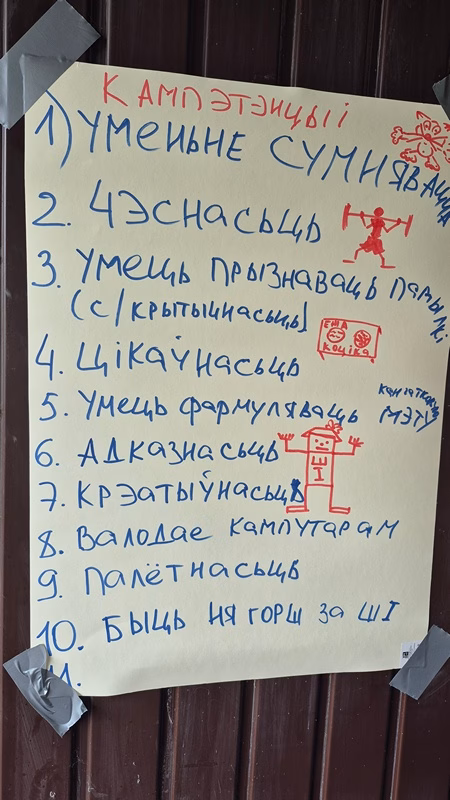 КАМПЭТЭНЦЫІ
1) УМЕНЬНЕ СУМНЯВАЦЦА
2. ЧЭСНАСЬЦЬ
3. УМЕЦЬ ПРЫЗНАВАЦЬ ПАМЫЛКІ
(С/КРЫТЫЧНАСЬЦЬ)
4. ЦІКАЎНАСЬЦЬ
КОЦІКА
5. УМЕЦЬ ФАРМУЛЯВАЦЬ
МЭТУ
6. АДКАЗНАСЬЦЬ
ШІ
7. КРЭАТЫЎНАСЬЦЬ
8. ВАЛОДАЕ КАМПУТАРАМ
9. ПАЛЁТНАСЬЦЬ
10. БЫЦЬ НЯ ГОРШ ЗА ШІ
11.